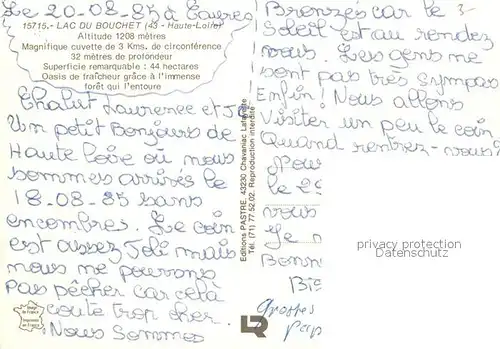 Le 20-08-85 à
15715.- LAC DU BOUCHET (43 - Haute-Loire)
Altitude 1208 mètres
Magnifique cuvette de 3 Kms. de circonférence
32 mètres de profondeur
Superficie remarquable : 44 hectares
Oasis de fraîcheur grâce à l'immense
forêt qui l'entoure
Chalut Laurence et
Un petit Bonjours de
Haute loire où nous
sommes arrivés le
18-08-85 sans
encombres. Le coin
est assez Joli mais
nous ne pouvons
pas pêcher car celà
coute trop cher.
Nous Sommes
Image de France
Imprimée en France
Editions PASTRE, 43230 Chavaniac Lafayette
Tél. (71) 77.52.02. Reproduction interdite
LR
Bronzés car le
Soleil est au rendez
vous. Les gens ne
sont pas très sympas
Enfin! Nous allons
visiter un peu le coin
Quand rentrez-vous?
Pour
le 29
vous
Je
Bonne
Bie
Grosses
pap
privacy protection
Datenschutz